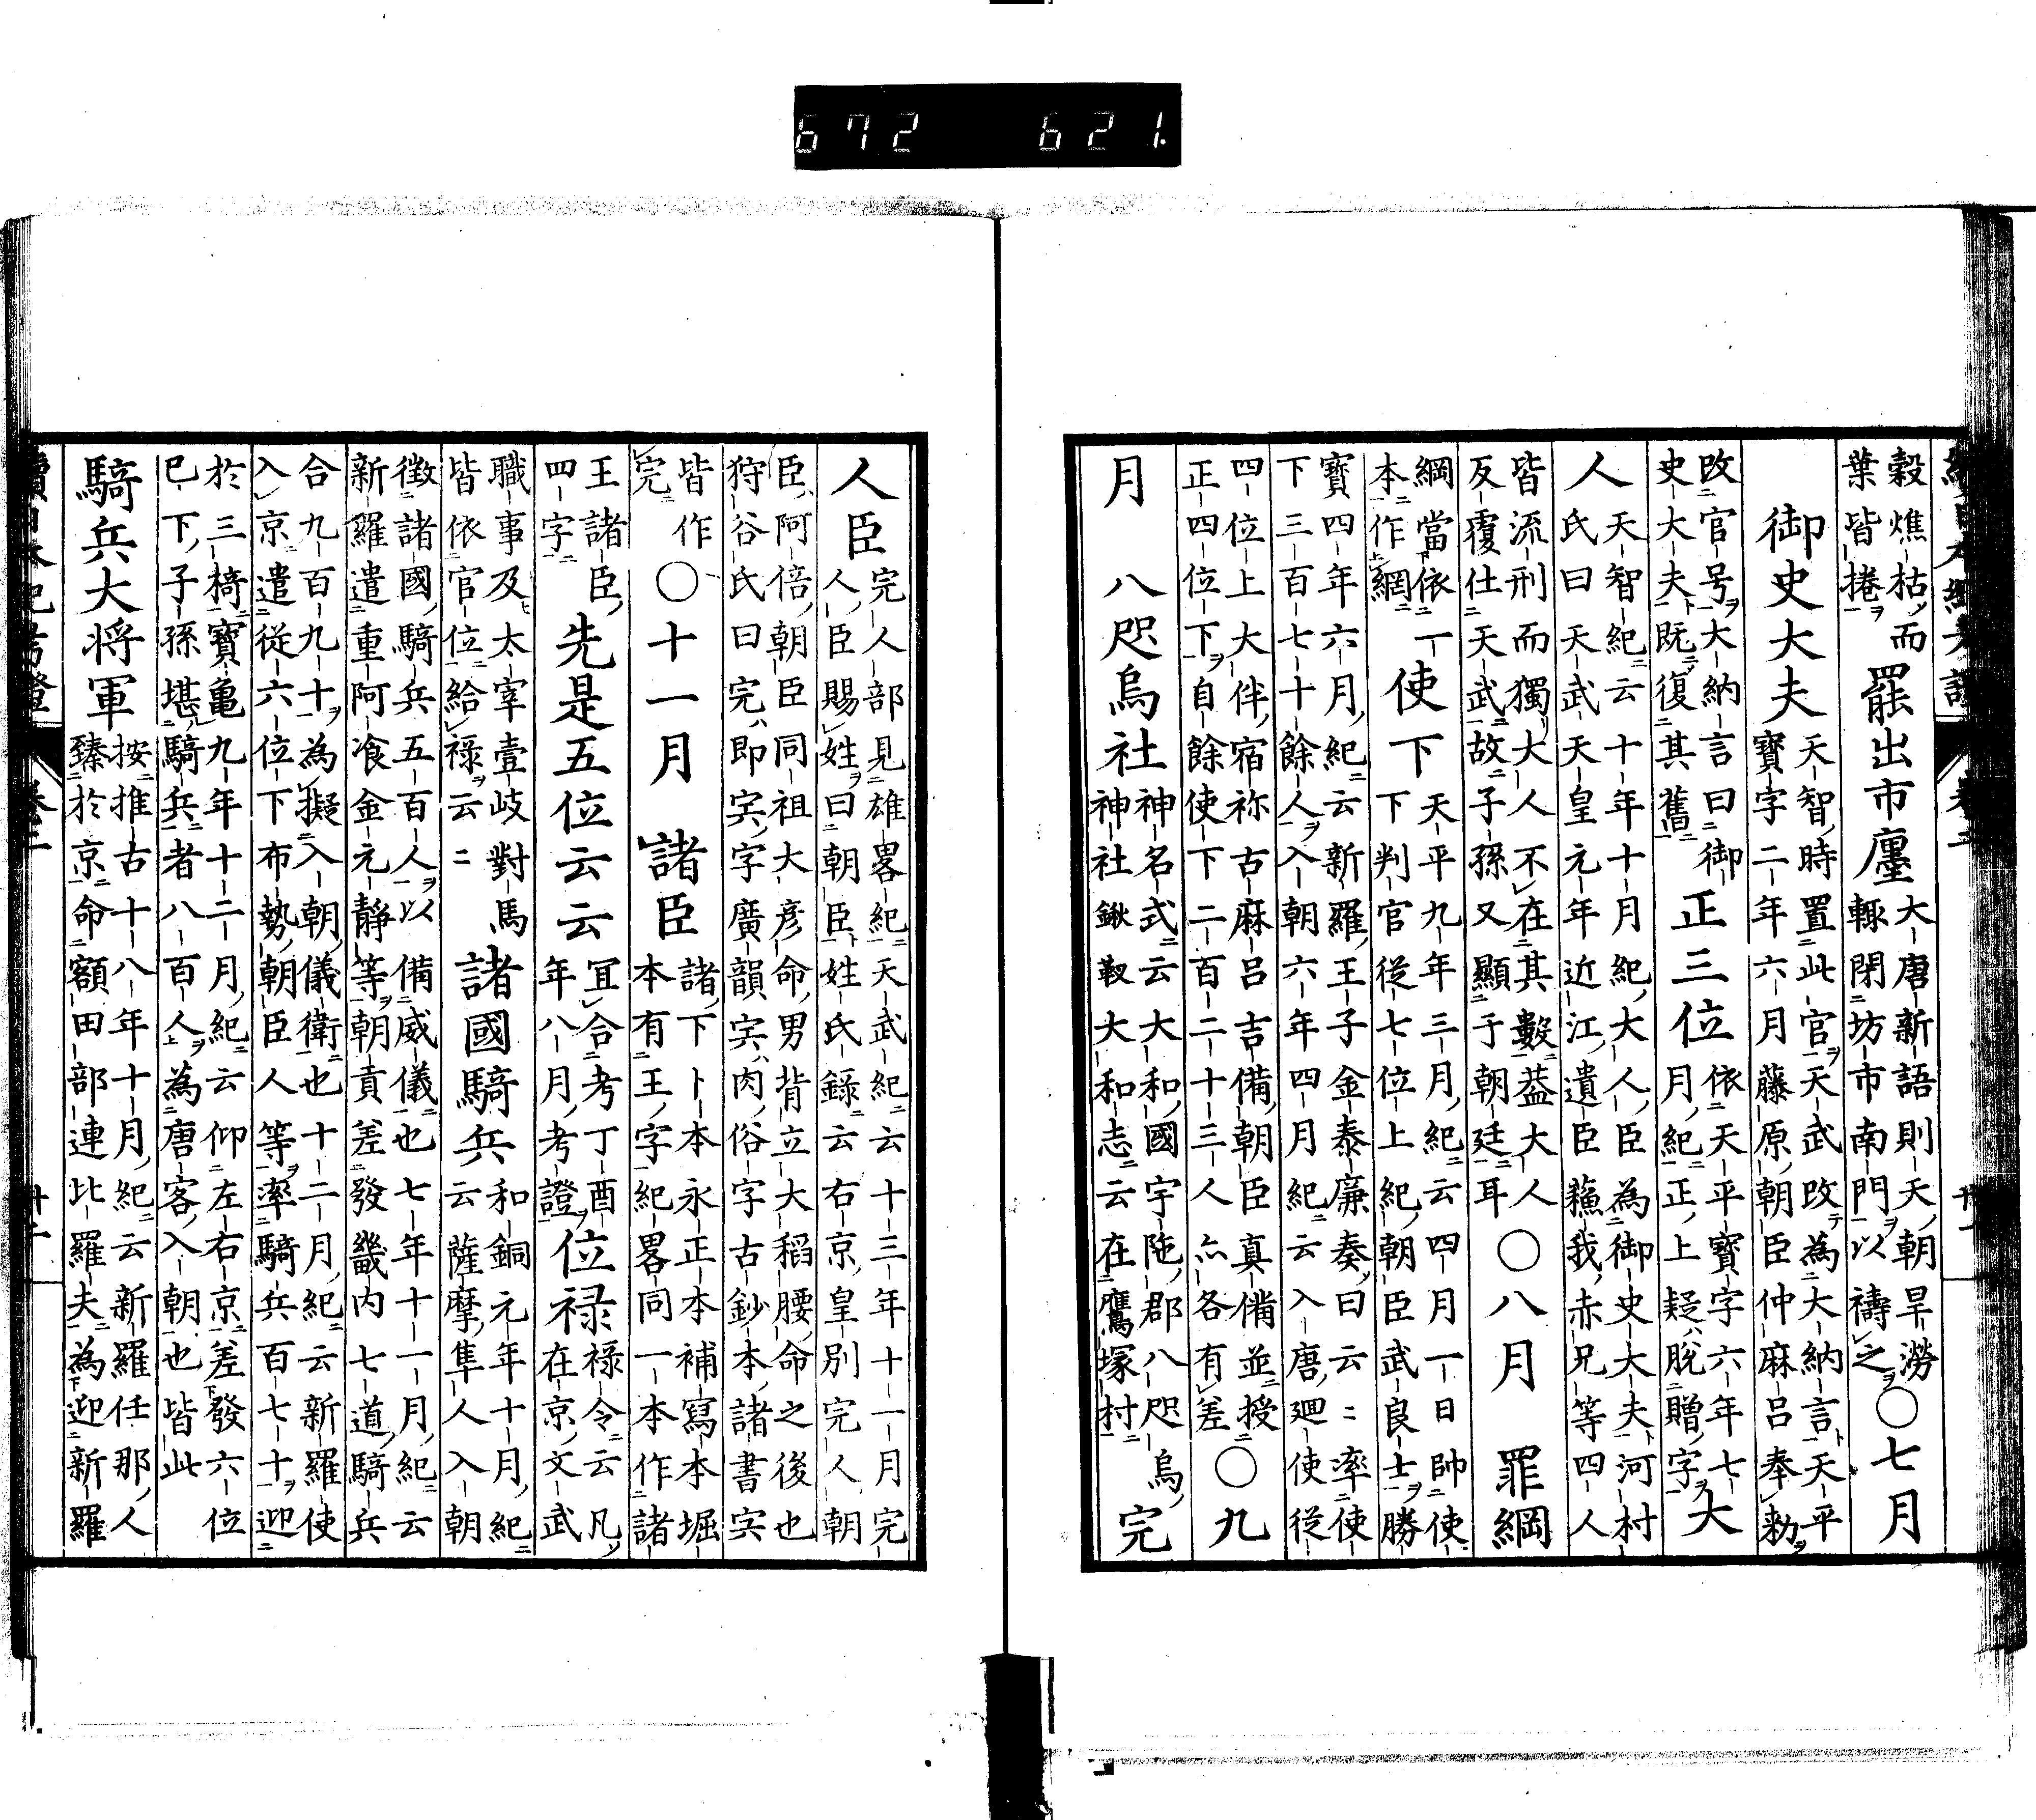 穀燋枯而葉皆捲罷出市廛大唐新語則天朝旱澇輙閉坊市南門以禱之○七月
御史大夫天智時置此官天武改為大納言天平寶字二年六月藤原朝臣仲麻呂奉勅
改官号大納言曰御史大夫既復其舊正三位依天平寶字六年七月紀正上疑脫贈字大
人天智紀云十年十月紀大人臣為御史大夫河村氏曰天武天皇元年近江遺臣蘓我赤兄等四人
皆流刑而獨大人不在其數葢大人反覆仕天武故子孫又顯于朝廷耳○八月 罪綱
綱當依一本作網使下天平九年三月紀云四月一日帥使下判官従七位上紀朝臣武良士勝
寶四年六月紀云新羅王子金泰廉奏曰云〻率使下三百七十餘人入朝六年四月紀云入唐廻使従
四位上大伴宿祢古麻呂吉備朝臣真備並授正四位下自餘使下二百二十三人亦各有差○九
月 八咫烏社神名式云大和國宇陁郡八咫烏神社鍬靫大和志云在鷹塚村完
人臣完人部見雄畧紀天武紀云十三年十一月完人臣賜姓曰朝臣姓氏錄云右京皇別完人朝
臣阿倍朝臣同祖大彦命男背立大稻腰命之後也狩谷氏曰完即宍字廣韻宍肉俗字古鈔本諸書宍
皆作完○十一月 諸臣諸下卜本永正本補寫本堀本有王字紀畧同一本作諸
王諸臣四字先是五位云云冝合考丁酉年八月考證位禄禄令云凡在京文武
職事及太宰壹岐對馬皆依官位給禄云〻諸國騎兵和銅元年十月紀云薩摩隼人入朝
徴諸國騎兵五百人以備威儀也七年十一月紀云新羅遣重阿飡金元靜等朝貢差發畿内七道騎兵
合九百九十為擬入朝儀衛也十二月紀云新羅使入京遣従六位下布勢朝臣人等率騎兵百七十迎
於三椅寶亀九年十二月紀云仰左右京差發六位已下子孫堪騎兵者八百人為唐客入朝也皆此
騎兵大将軍按推古十八年十月紀云新羅任那人臻於京命額田部連比羅夫為迎新羅